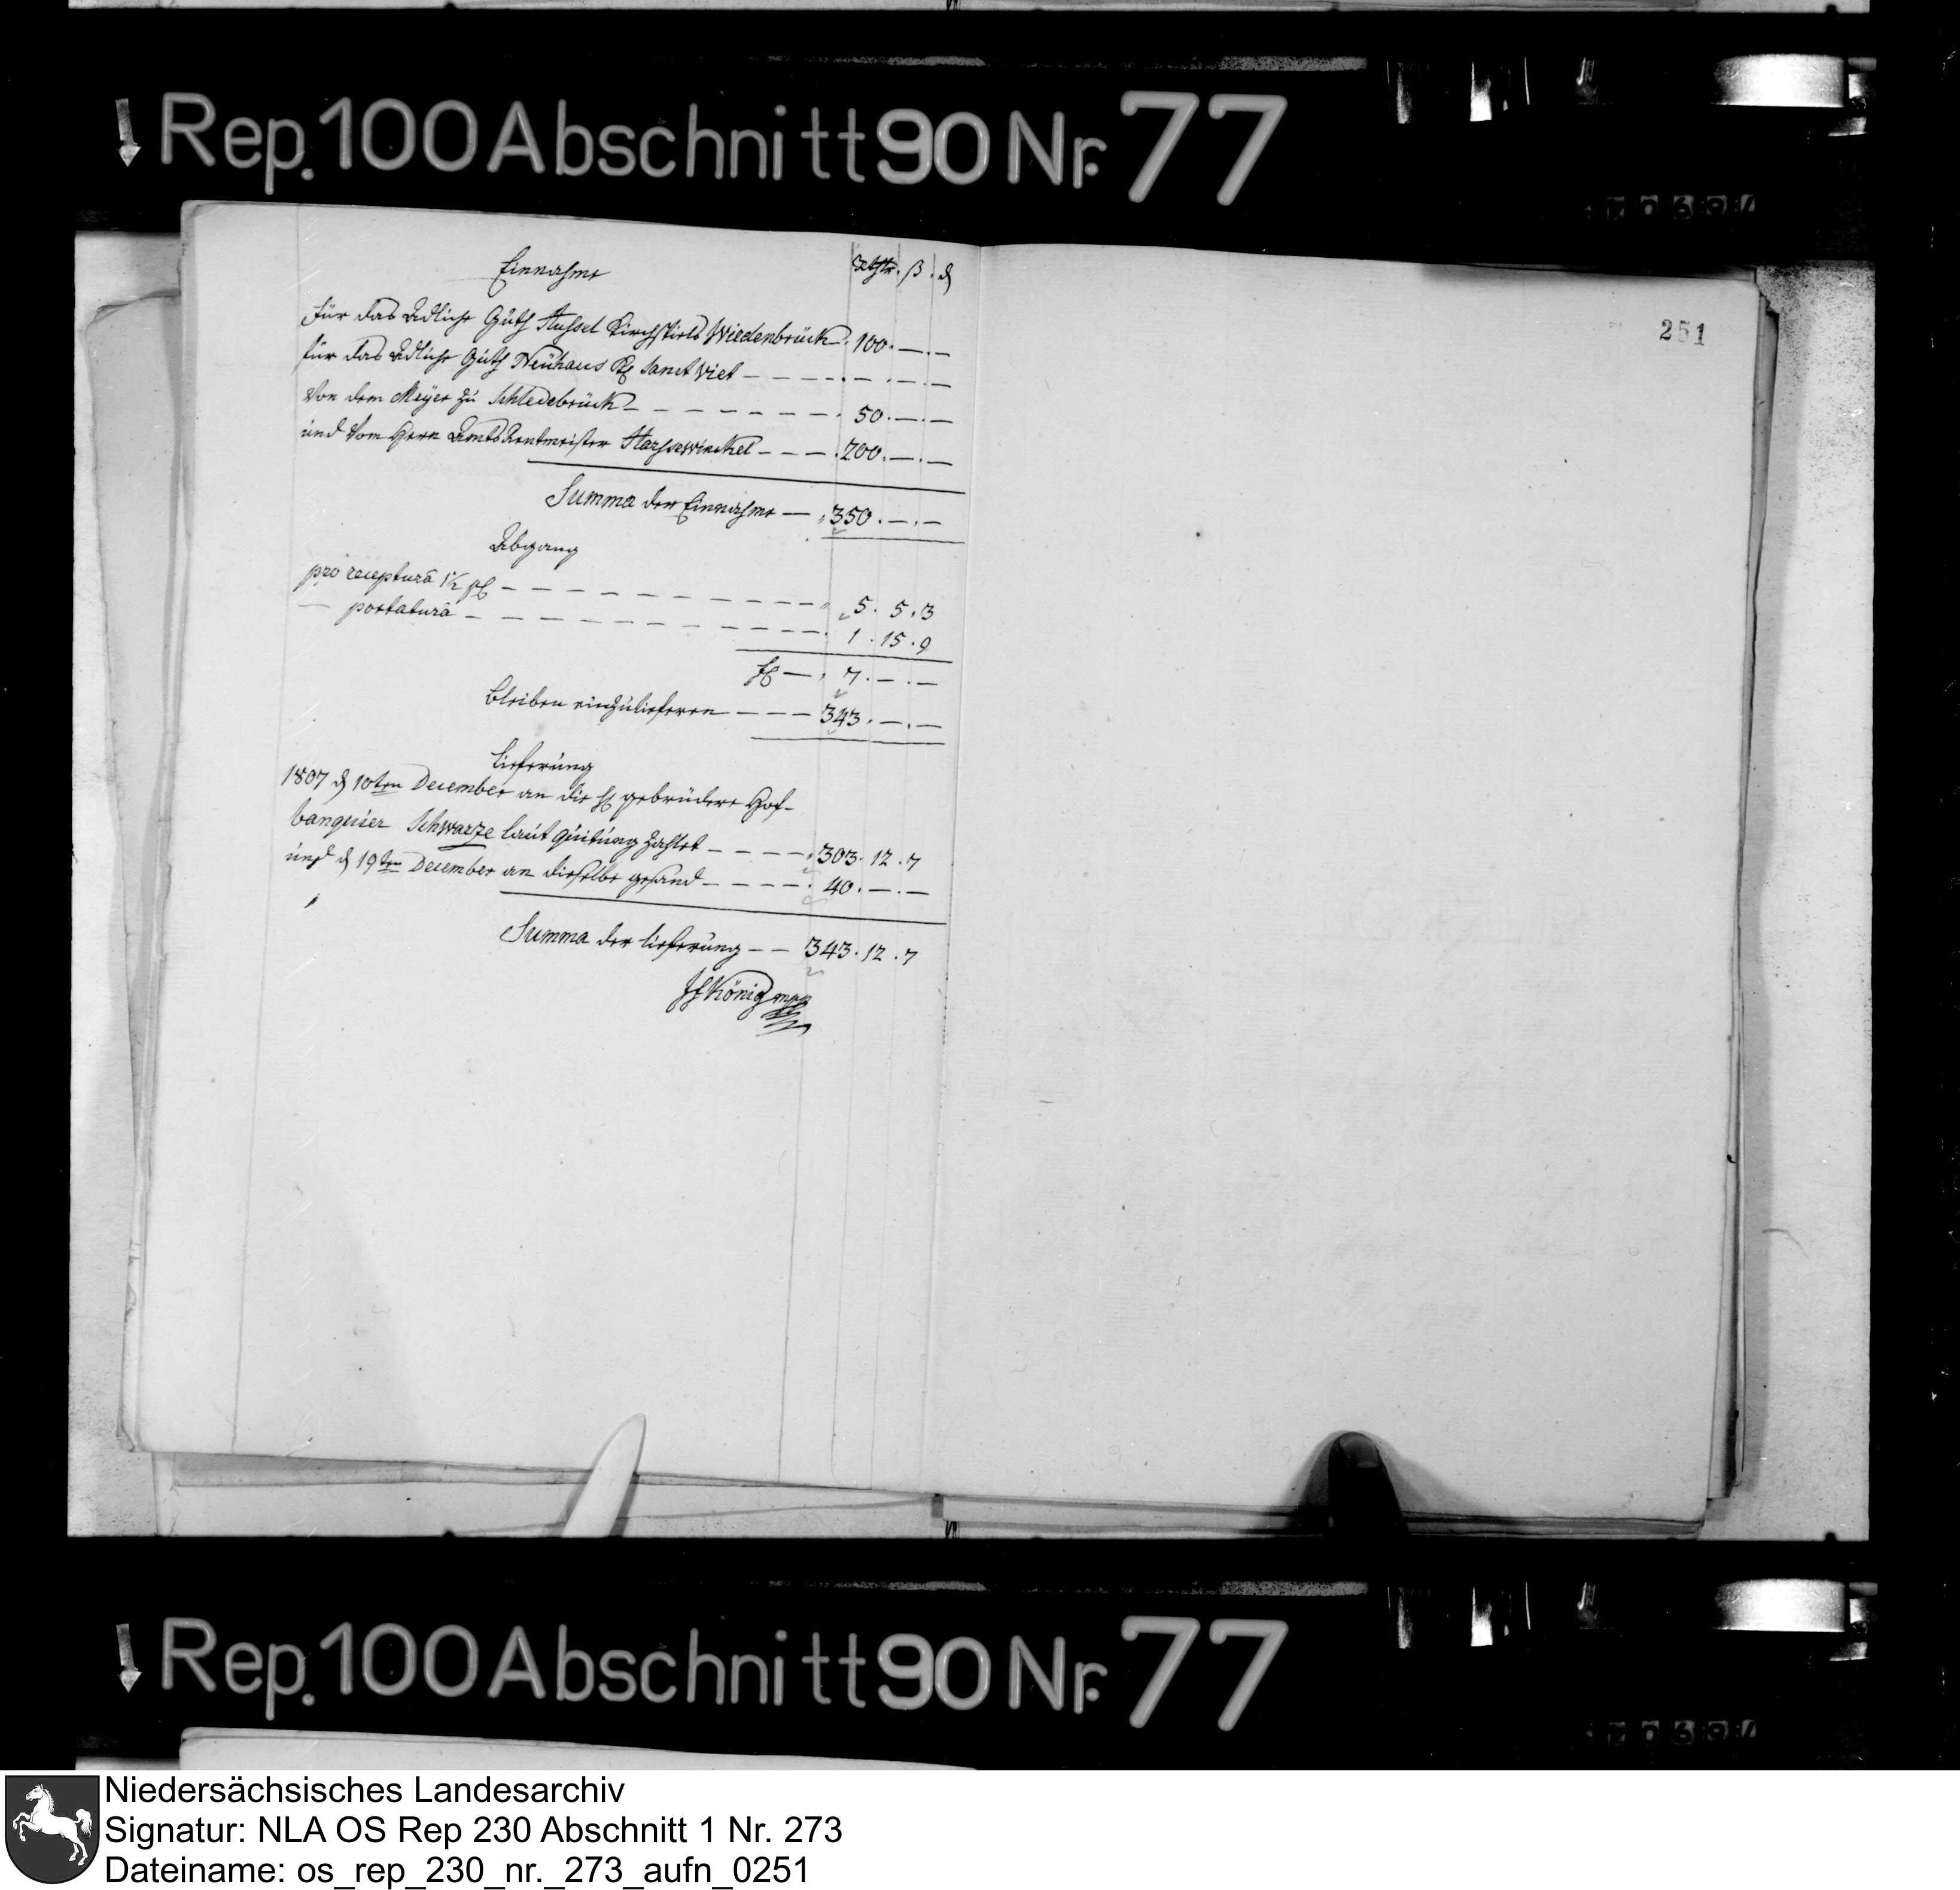 Rep. 100 Abschnitt 90 Nr. 77
251
Einnahme
Rthlr. ß. d
für das Adliche Guth Aussel Kirchspiels Wiedenbrück. 100. —. —
für das Adliche Guth Neühaus Sanct Viet — — — — —. —. —
Von dem Meÿer zu Schledebrück — — — — — — — . 50. —. —
und Vom Herrn Amts Rentmeister Harsewinckel — — — . 200. —. —
Summa der Einnahme — . 350. —. —
Abgang
pro receptura 1½ — — — — — — — — — — 5. 5. 3
— portatura — — — — — — — — — — — 1. 15. 9
— . 7. —. —
Bleiben einzulieferen — — — 343. —. —
Lieferung
1807 d 10ten December an die gebrüdere Hof-
banquier Schwarze laut Quitung zahlet — — — — . 303. 12. 7
und d 19ten December an dieselbe gesand — — — — . 40. —. —
Summa der Lieferung — — 343. 12. 7
König mpp
Rep. 100 Abschnitt 90 Nr. 77
Niedersächsisches Landesarchiv
Signatur: NLA OS Rep 230 Abschnitt 1 Nr. 273
Dateiname: os_rep_230_nr._273_aufn_0251